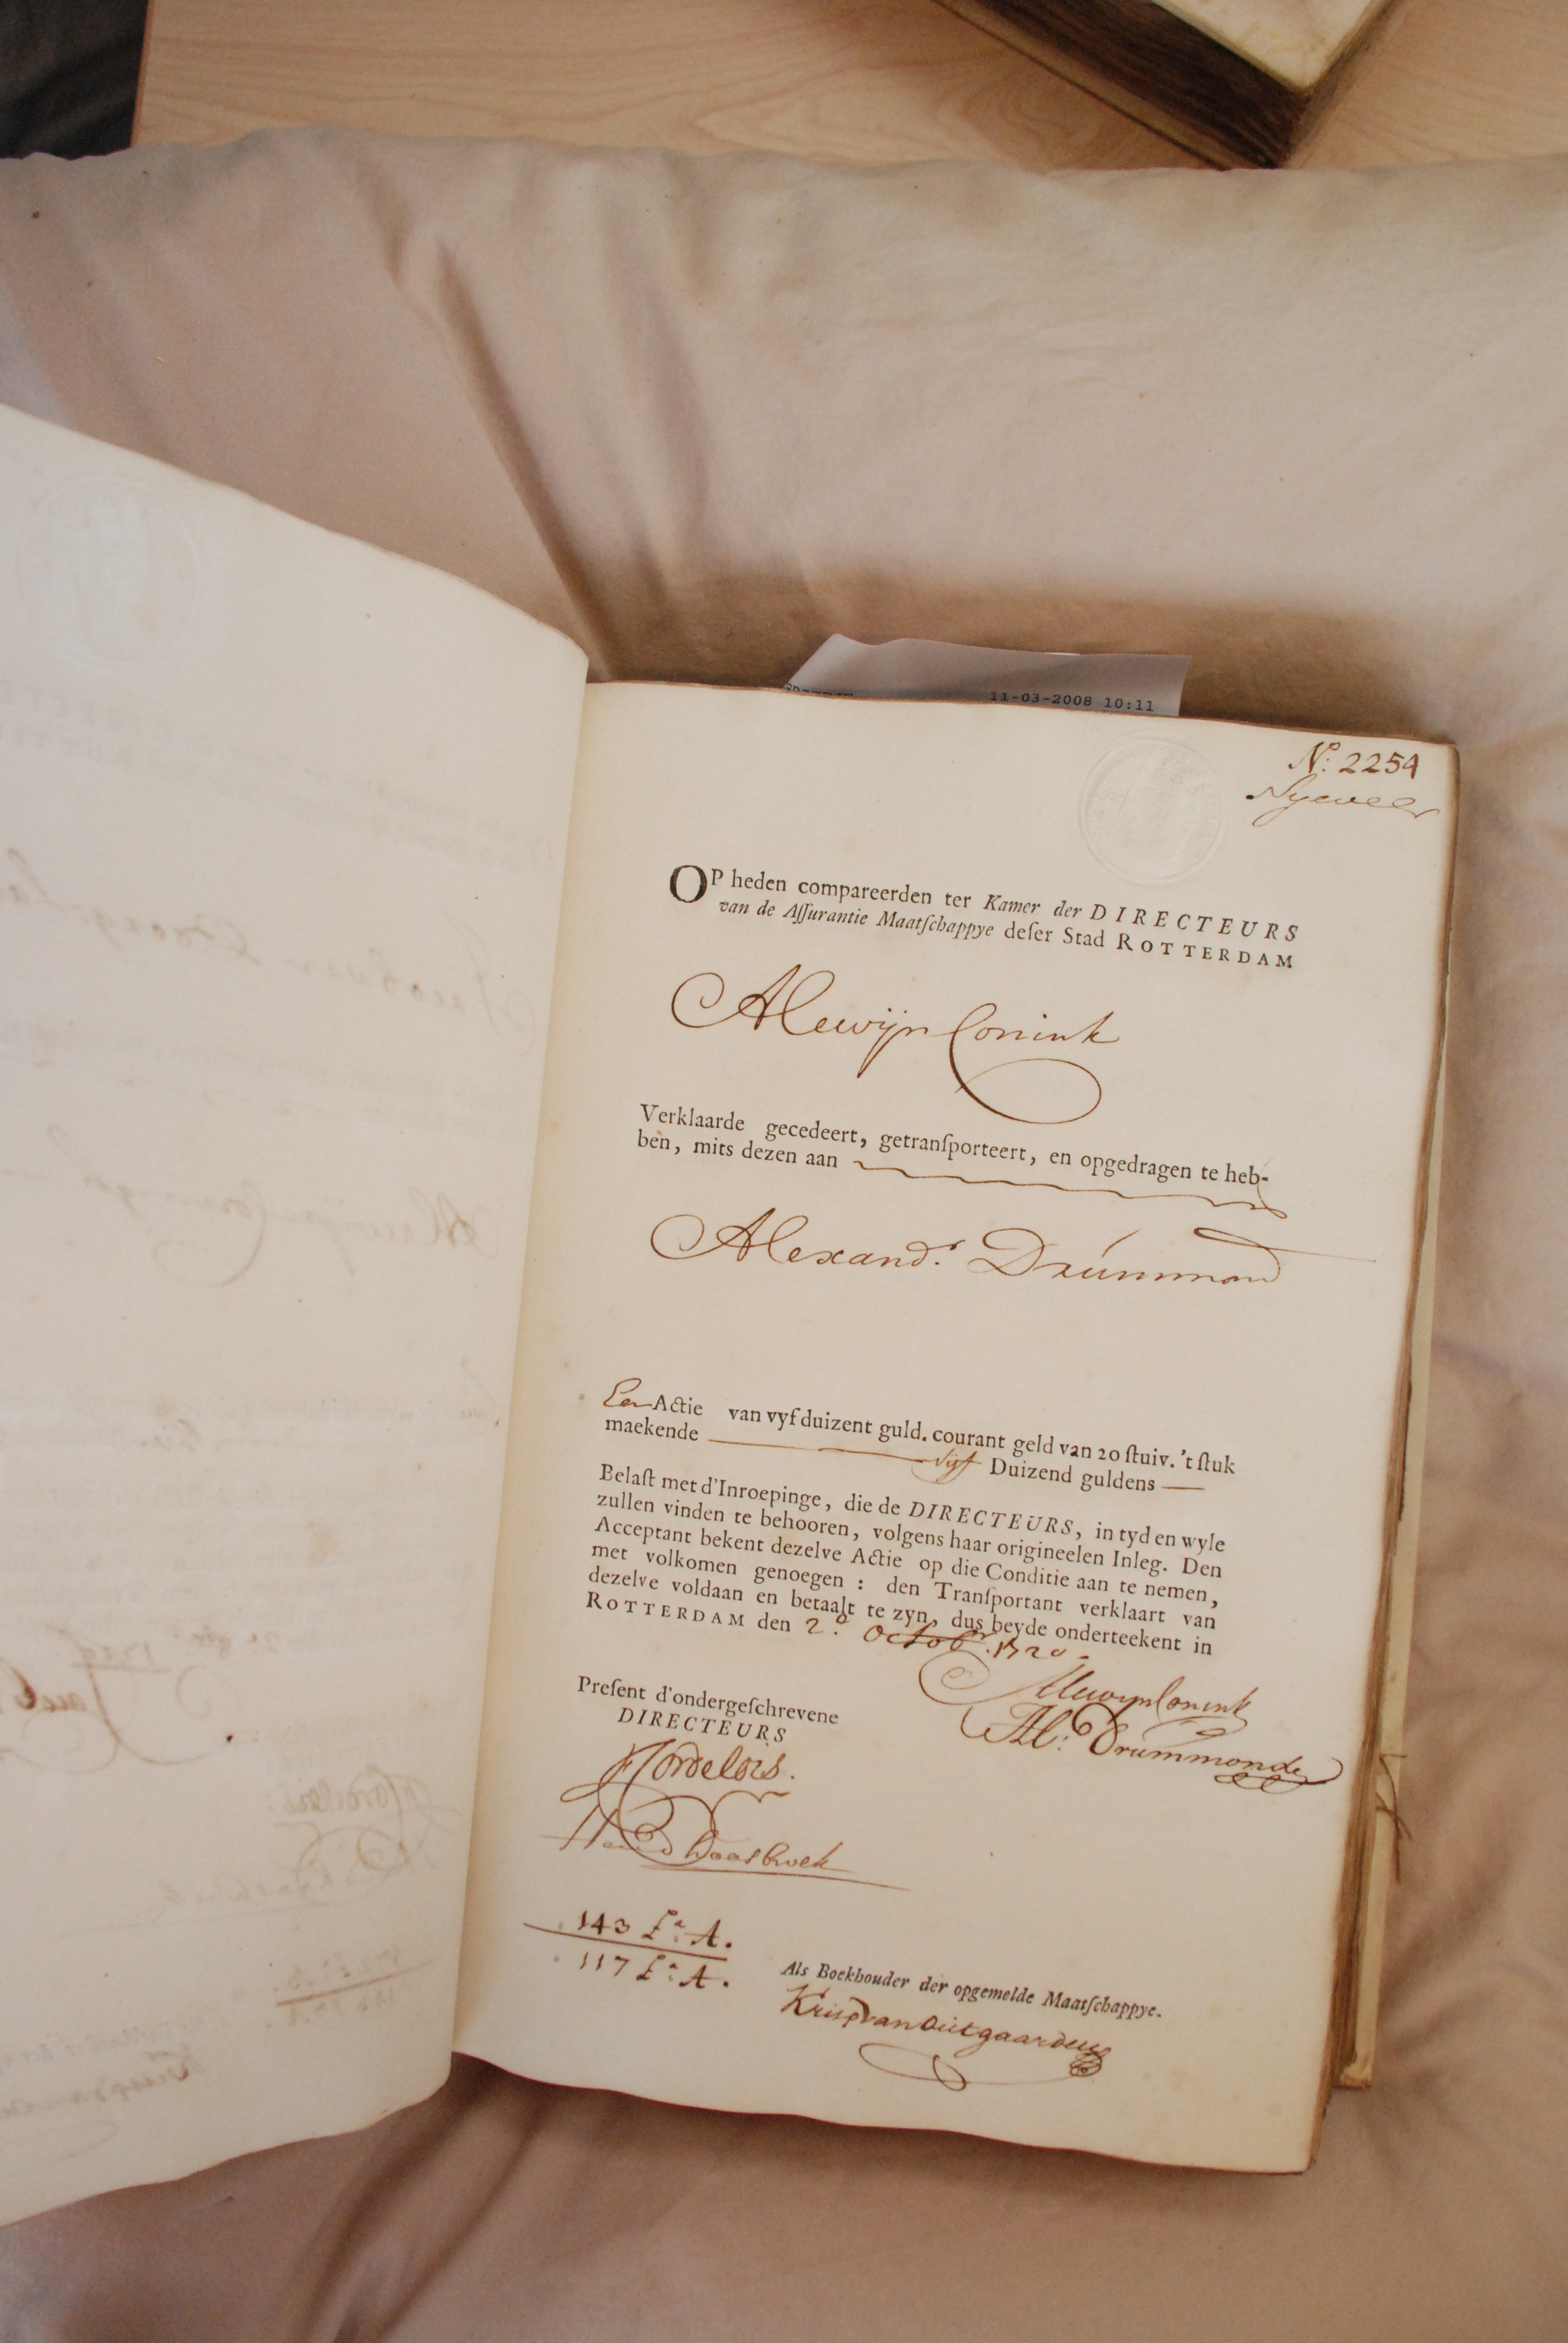 11-03-2008 10:11
No: 2254
Nyeveer
OP heden compareerden ter Kamer der DIRECTEURS
van de Aſſurantie Maatſchappye deſer Stad ROTTERDAM
Alewijn Conink
Verklaarde gecedeert, getranſporteert, en opgedragen te heb-
ben, mits dezen aan
Alexandr. Drummond
Een Actie van vyf duizent guld. courant geld van 20 ſtuiv. 't ſtuk
maekende vijf Duizend guldens
Belaſt met d'Inroepinge, die de DIRECTEURS, in tyd en wyle
zullen vinden te behooren, volgens haar origineelen Inleg. Den
Acceptant bekent dezelve Actie op die Conditie aan te nemen,
met volkomen genoegen : den Tranſportant verklaart van
dezelve voldaan en betaalt te zyn, dus beyde onderteekent in
ROTTERDAM den 2o. Octobr. 1720.
Alewyn Conink
Al: Drummonde
Preſent d'ondergeſchrevene
DIRECTEURS
143 Fo. A.
117 Fo. A.
Als Boekhouder der opgemelde Maatſchappye.
Krisp van Outgaarden